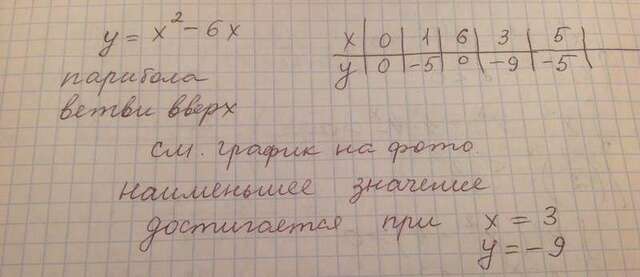 y = x² - 6x
x | 0 | 1 | 6 | 3 | 5 |
y | 0 | -5 | 0 | -9 | -5 |
парибола
ветви вверх
см. график на фото.
наименьшее значение
достигается при x = 3
y = -9